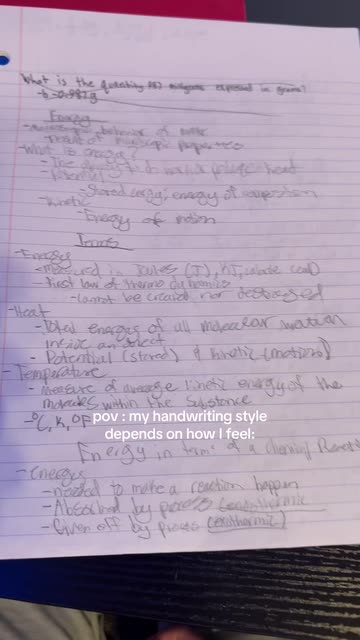 What is the quantity 987 milligrams expressed in grams?
-b-0.987g
Energy
-Macroscopic behavior of matter
-Result of microscopic properties
-What is energy?
-The ability to do work or produce heat
-Potential
-Stored energy; energy of composition
-Kinetic
-Energy of motion
Terms
-Energy
-measured in Joules (J), KJ, calorie (cal)
-First law of thermo dynamics
-Cannot be created nor destroyed
-Heat
-Total energy of all molecular motion
inside an object
-Potential (stored) & kinetic (motion)
-Temperature
-measure of average kinetic energy of the
molecules within the substance
-°C, K, °F
pov : my handwriting style
depends on how I feel:
Energy in of a chemical
-Energy
-needed to make a reaction happen
-Absorbed by process (endothermic
-Given off by process (exothermic)